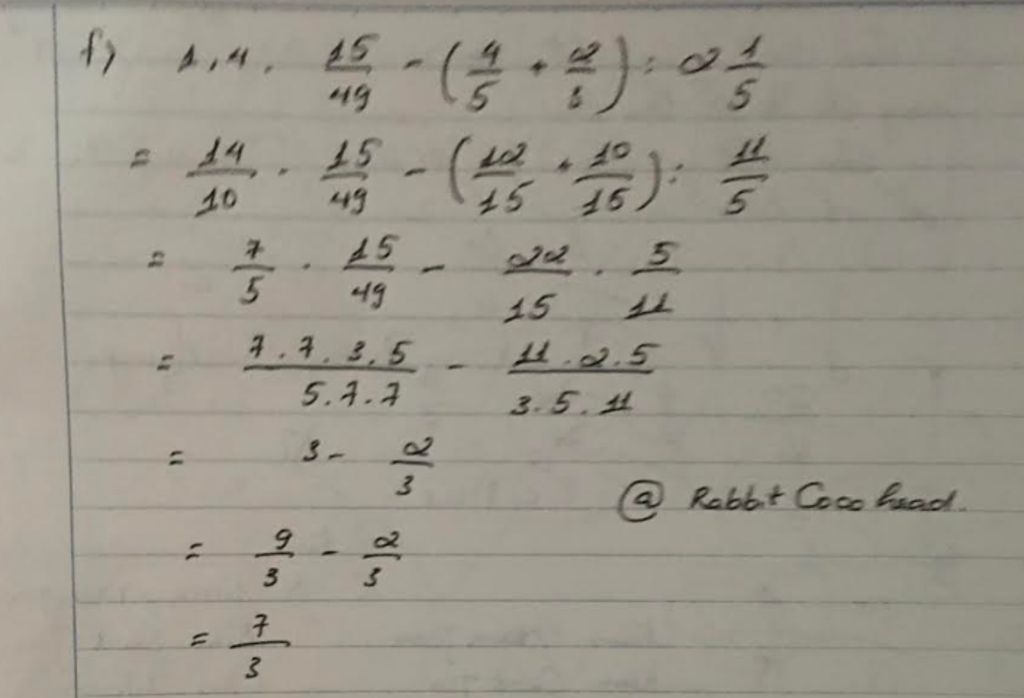 f) 1,4 . 15/49 - (4/5 + 2/3) : 2 1/5
= 14/10 . 15/49 - (12/15 + 10/15) : 11/5
= 7/5 . 15/49 - 22/15 . 5/11
= 7.7.3.5/5.7.7 - 11.2.5/3.5.11
= 3 - 2/3
@ Rabbit Coco head.
= 9/3 - 2/3
= 7/3